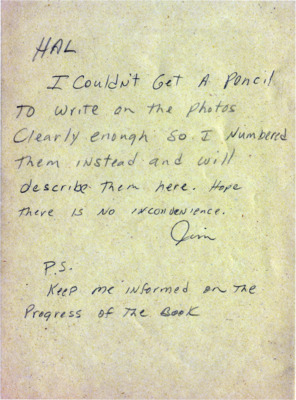 HAL
I Couldn't Get A Pencil
To write on the photos
Clearly enough so I Numbered
them instead and will
describe them here. Hope
there is No inconvenience.
Jim
P.S.
Keep me informed on the
Progress of the Book